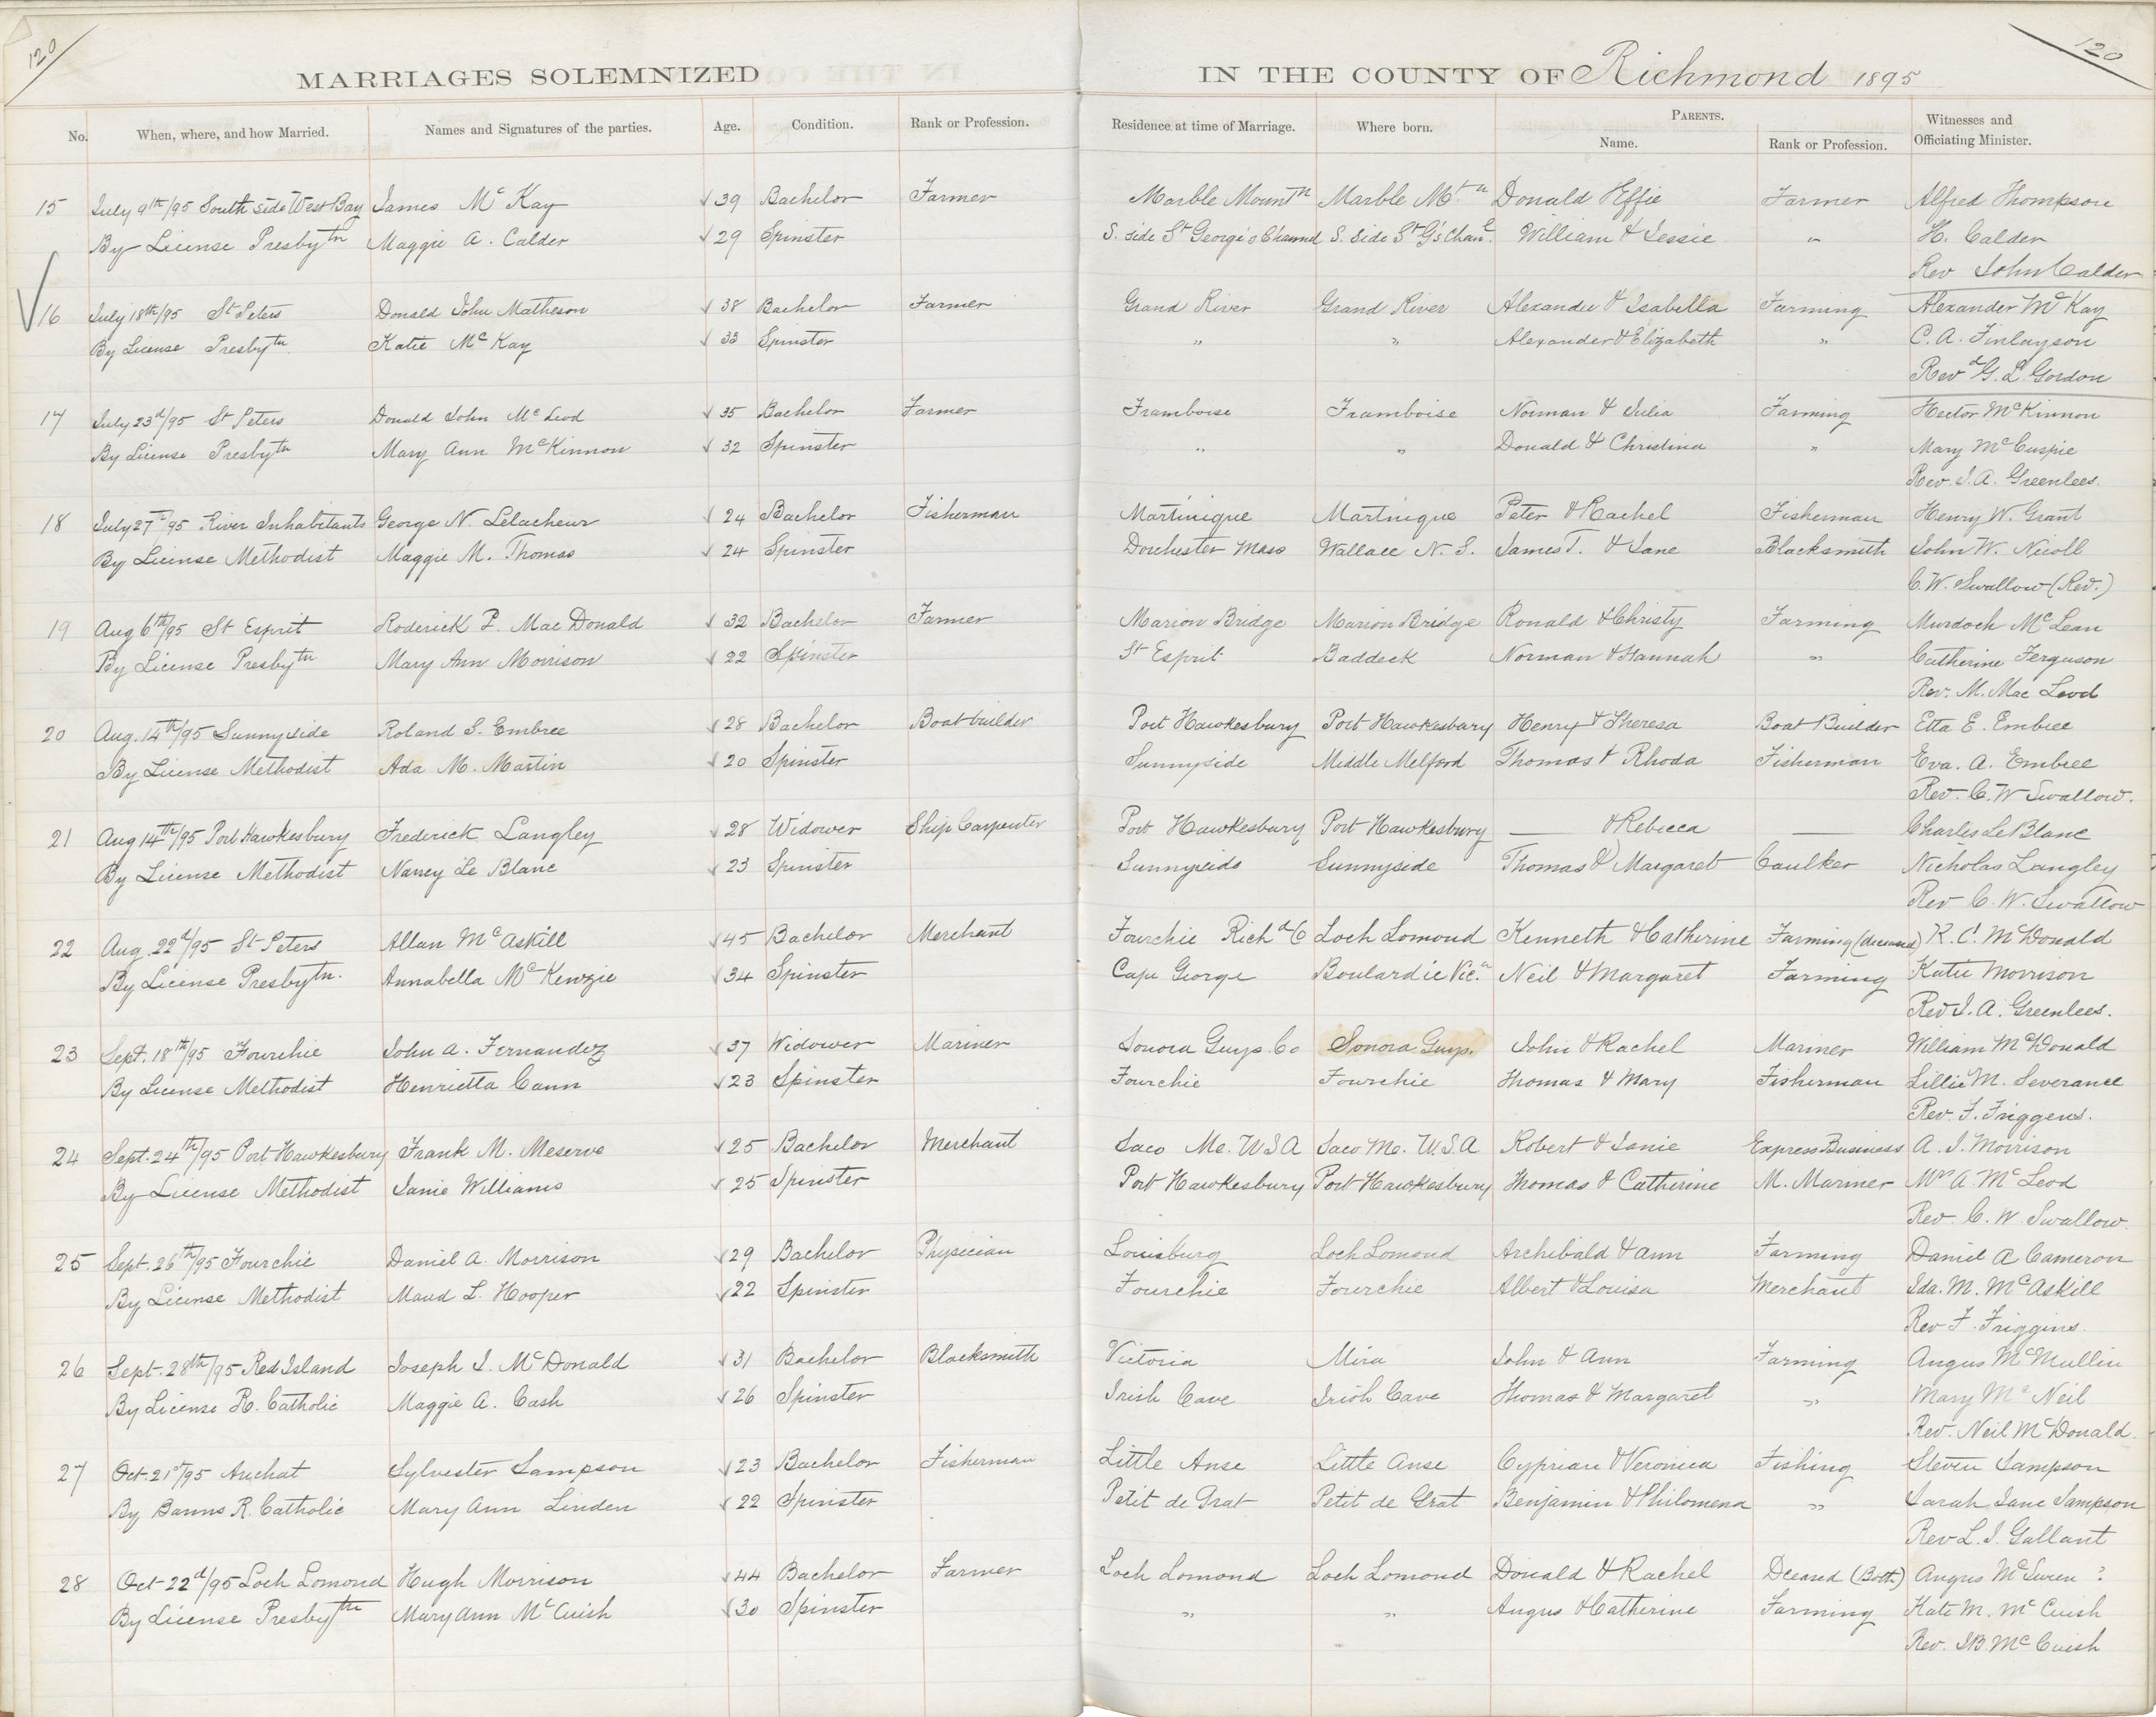 120
120
MARRIAGES SOLEMNIZED IN THE COUNTY OF Richmond 1895
No. When, where, and how Married. Names and Signatures of the parties. Age. Condition. Rank or Profession. Residence at time of Marriage. Where born. PARENTS. Name. Rank or Profession. Witnesses and Officiating Minister.
15 July 9th/95 South side West Bay James Mc Kay 39 Bachelor Farmer Marble Mountn Marble Mtn Donald Effie Farmer Alfred Thompson
By License Presbytn Maggie A. Calder 29 Spinster S. side St George's Channel S. Side St G's Chanl. William & Jessie " H. Calder
Rev John Calder
16 July 18th/95 St Peters Donald John Matheson 38 Bachelor Farmer Grand River Grand River Alexander & Isabella Farming Alexander Mc Kay
By License Presbytn. Katie Mc Kay 33 Spinster " " Alexander & Elizabeth " C. A. Finlayson
Revd G. L. Gordon
17 July 23d/95 St Peters Donald John Mc Leod 35 Bachelor Farmer Framboise Framboise Norman & Julia Farming Hector McKinnon
By License Presbytn Mary Ann McKinnon 32 Spinster " " Donald & Christina " Mary McCuspie
Rev. J. A. Greenlees.
18 July 27th/95 River Inhabitants George N. Lelacheur 24 Bachelor Fisherman Martinique Martinique Peter & Rachel Fisherman Henry W. Grant
By License Methodist Maggie M. Thomas 24 Spinster Dorchester Mass Wallace N. S. James T. & Jane Blacksmith John W. Nicoll
C. W. Swallow (Rev.)
19 Aug 6th/95 St Esprit Roderick P. Mac Donald 32 Bachelor Farmer Marion Bridge Marion Bridge Ronald & Christy Farming Murdoch McLean
By License Presbytn Mary Ann Morrison 22 Spinster St Esprit Baddeck Norman & Hannah " Catherine Ferguson
Rev. M. Mac Leod
20 Aug. 14th/95 Sunnyside Roland S. Embree 28 Bachelor Boatbuilder Port Hawkesbury Port Hawkesbury Henry & Theresa Boat Builder Etta E. Embree
By License Methodist Ada M. Martin 20 Spinster Sunnyside Middle Melford Thomas & Rhoda Fisherman Eva. A. Embree
Rev. C. W Swallow.
21 Aug 14th/95 Port Hawkesbury Frederick Langley 28 Widower Ship Carpenter Port Hawkesbury Port Hawkesbury — & Rebecca — Charles LeBlanc
By License Methodist Nancy Le Blanc 23 Spinster Sunnyside Sunnyside Thomas & Margaret Caulker Nicholas Langley
Rev C. W. Swallow
22 Aug. 22d/95 St Peters Allan McAskill 45 Bachelor Merchant Fourchie Richd Co Loch Lomond Kenneth & Catherine Farming (deceased) R. C. McDonald
By License Presbytn. Annabella McKenzie 34 Spinster Cape George Boulardie Vic.a Neil & Margaret Farming Katie Morrison
Rev J. A. Greenlees.
23 Sept. 18th/95 Fourchie John A. Fernandez 37 Widower Mariner Sonora Guys. Co Sonora Guys. John & Rachel Mariner William McDonald
By License Methodist Henrietta Cann 23 Spinster Fourchie Fourchie Thomas & Mary Fisherman Lillie M. Severance
Rev. F. Friggens.
24 Sept. 24th/95 Port Hawkesbury Frank M. Meserve 25 Bachelor Merchant Saco Me. U.S.A Saco Me. U.S.A Robert & Janie Express Business A. J. Morrison
By License Methodist Janie Williams 25 Spinster Port Hawkesbury Port Hawkesbury Thomas & Catherine M. Mariner Mr A. Mc Leod
Rev. C. W Swallow.
25 Sept. 26th/95 Fourchie Daniel A. Morrison 29 Bachelor Physician Louisburg Loch Lomond Archibald & Ann Farming Daniel A Cameron
By License Methodist Maud L. Hooper 22 Spinster Fourchie Fourchie Albert & Louisa Merchant Ida. M. McAskill
Rev F. Friggins.
26 Sept. 28th/95 Red Island Joseph J. McDonald 31 Bachelor Blacksmith Victoria Mira John & Ann Farming Angus McMullin
By License R. Catholic Maggie A. Cash 26 Spinster Irish Cave Irish Cave Thomas & Margaret " Mary Mc Neil
Rev. Neil McDonald.
27 Oct. 21st/95 Arichat Sylvester Sampson 23 Bachelor Fisherman Little Anse Little Anse Cyprian & Veronica Fishing Steven Sampson
By Banns R. Catholic Mary Ann Linden 22 Spinster Petit de Grat Petit de Grat Benjamin & Philomena " Sarah Jane Sampson
Rev L. J. Gallant
28 Oct 22d/95 Loch Lomond Hugh Morrison 44 Bachelor Farmer Loch Lomond Loch Lomond Donald & Rachel Dceased (Both) Angus McSwen ?
By License Presbytn Mary Ann McCuish 30 Spinster " " Angus & Catherine Farming Kate M. McCuish
Rev. J B McCuish